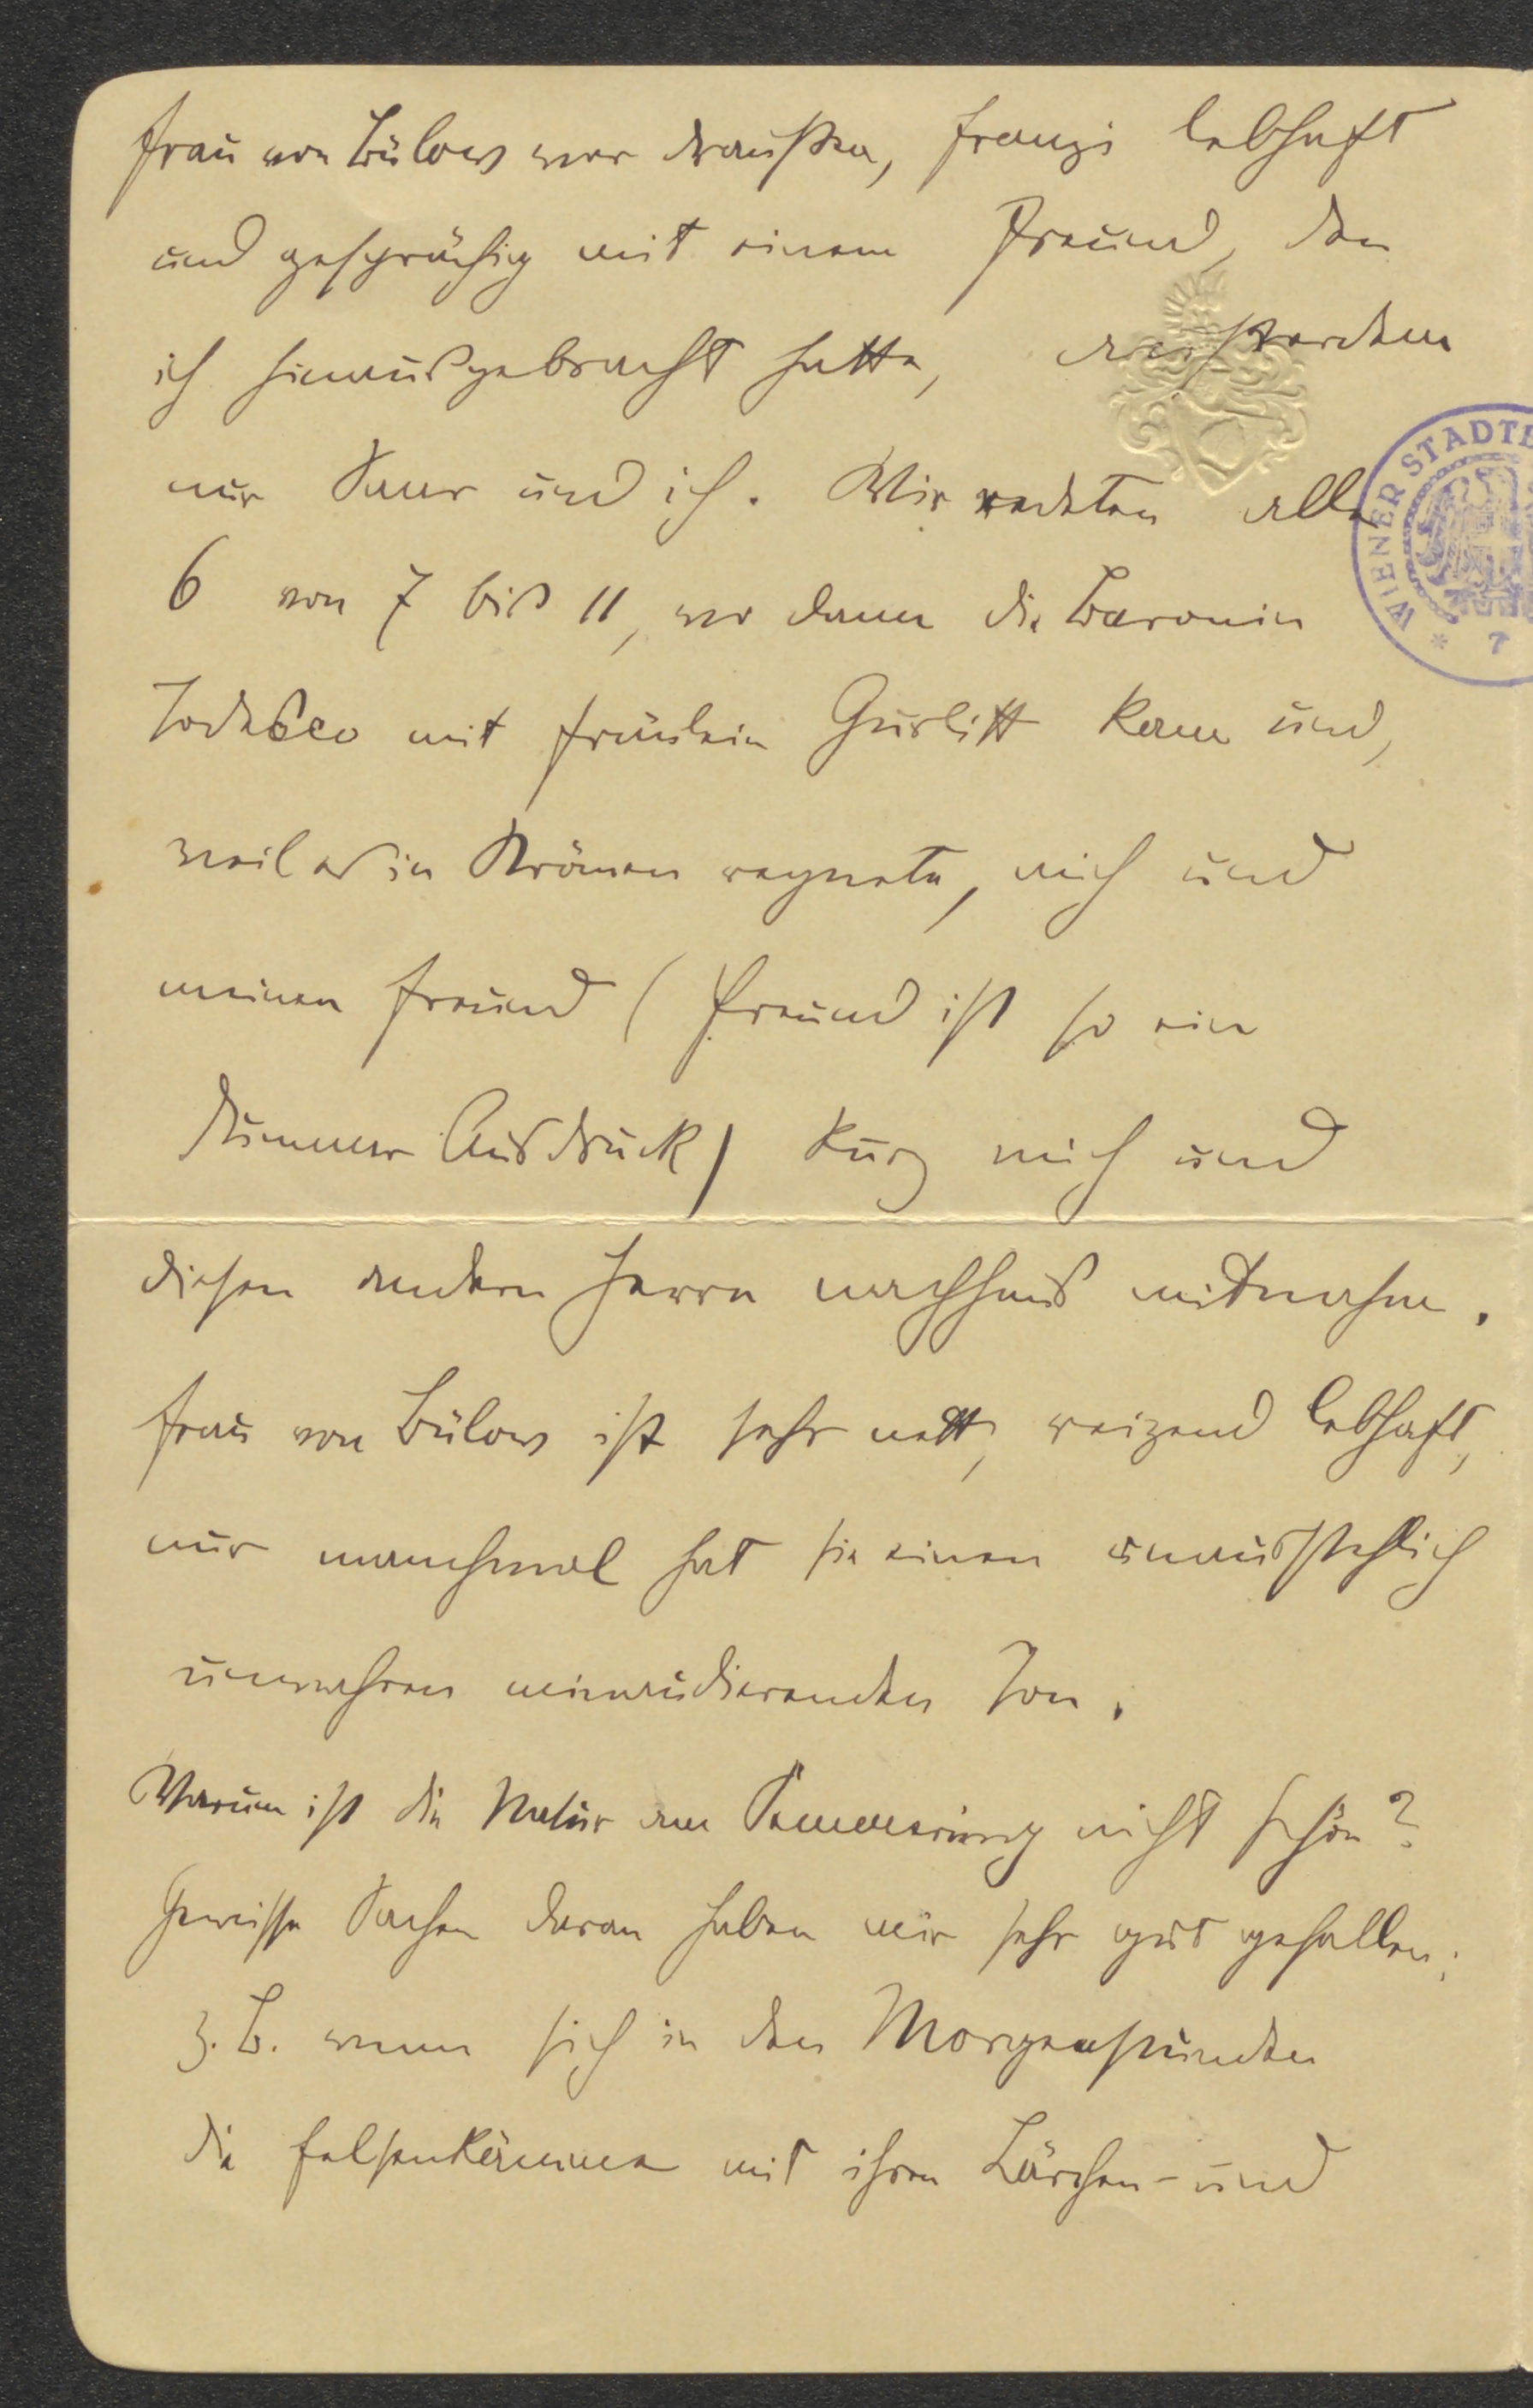 Frau von Bülow war draußen, Franzi lebhaft
und gesprächig mit einem Freund, den
ich hinausgebracht hatte, ausserdem
nur Saar und ich. Wir redeten alle
6 von 7 bis 11, wo dann die Baronin
Todesco mit Fräulein Gurlitt kam und,
weil es in Strömen regnete, mich und
meinen Freund (Freund ist so ein
dummer Ausdruck) kurz mich und
diesen andern Herrn nachhaus mitnahm.
Frau von Bülow ist sehr nett, reizend lebhaft,
nur manchmal hat sie einen unausstehlich
unwahren minaudierenden Ton.
Warum ist die Natur am Semmering nicht schön?
Gewisse Sachen daran haben mir sehr gut gefallen;
z. B. wenn sich in den Morgenstunden
die Felsenkämme mit ihren Lärchen- und
WIENER STADTB
* 7